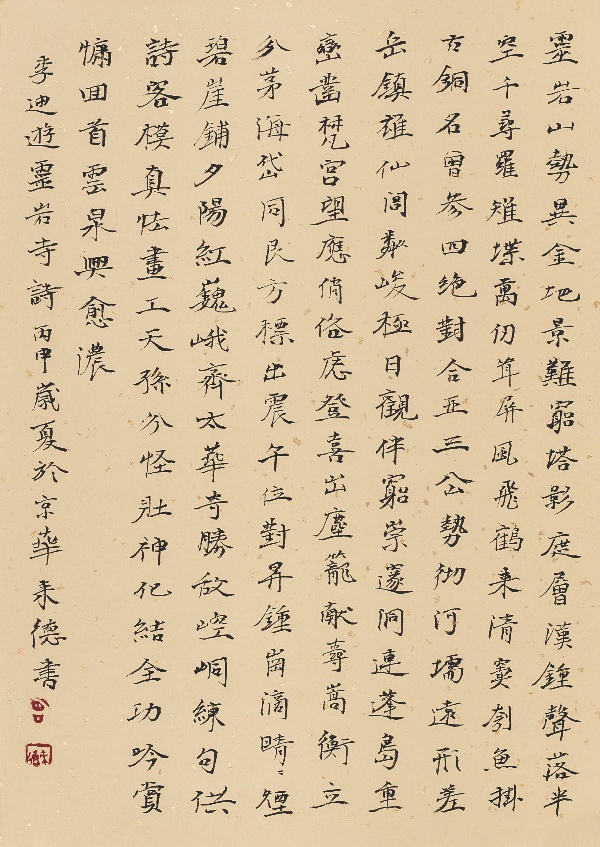 靈岩山勢異金地景難窮塔影遮層漢鍾聲落半
空千尋羅雉堞萬仞聳屏風飛鶴來清竇刳魚掛
古銅名曾參四絶對合亞三公勢彻河壖遠形差
岳鎮雄仙閭粦峻極日觀伴窮崇邃洞連蓬島重
巒凿梵宮望應俏俗慮登喜出塵籠献壽嵩衡立
分茅海岱同艮方標出震午位對昇鍾崗滴晴〻煙
碧崖鋪夕陽紅巍峨齊太華奇勝敌崆峒練句供
詩客模真怯畫工天孫分怪壯神化結全功吟賞
慵囬首雲泉興愈濃
李迪遊靈岩寺詩 丙申歲夏於京華来德書